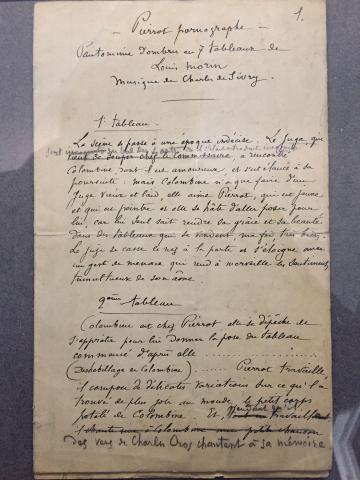 1.
- Pierrot pornographe -
Pantomime d'ombres en 7 tableaux de
Louis Morin
Musique de Charles de Sivry.
1er tableau.
La scène se passe à une époque indécise. Le Juge qui
vient de souper chez le commissaire, a rencontré
Colombine, dont il est amoureux, et s'est élancé à sa
poursuite; mais Colombine n'a que faire d'un
Juge vieux et laid, elle aime Pierrot, qui est jeune
et qui est peintre et elle se hâte d'aller poser pour
lui, car lui seul sait rendre sa grâce et sa beauté
dans des tableaux qui se vendent, ma foi très bien.
Le juge se casse le nez à la porte et s'éloigne avec
un geste de menace qui rend à merveille les sentiments
tumultueux de son âme
2ème tableau
Colombine est chez Pierrot elle se dépêche de
s'apprêter pour lui donner la pose du tableau
commencé d'après elle
(Deshabillage de Colombine) Pierrot travaille
il compose de délicates variations sur ce qu'il a
trouvé de plus joli au monde, le petit corps
potelé de Colombine. Et
il chante à Colombine une petite chanson
des vers de Charles Cros chantent à sa mémoire